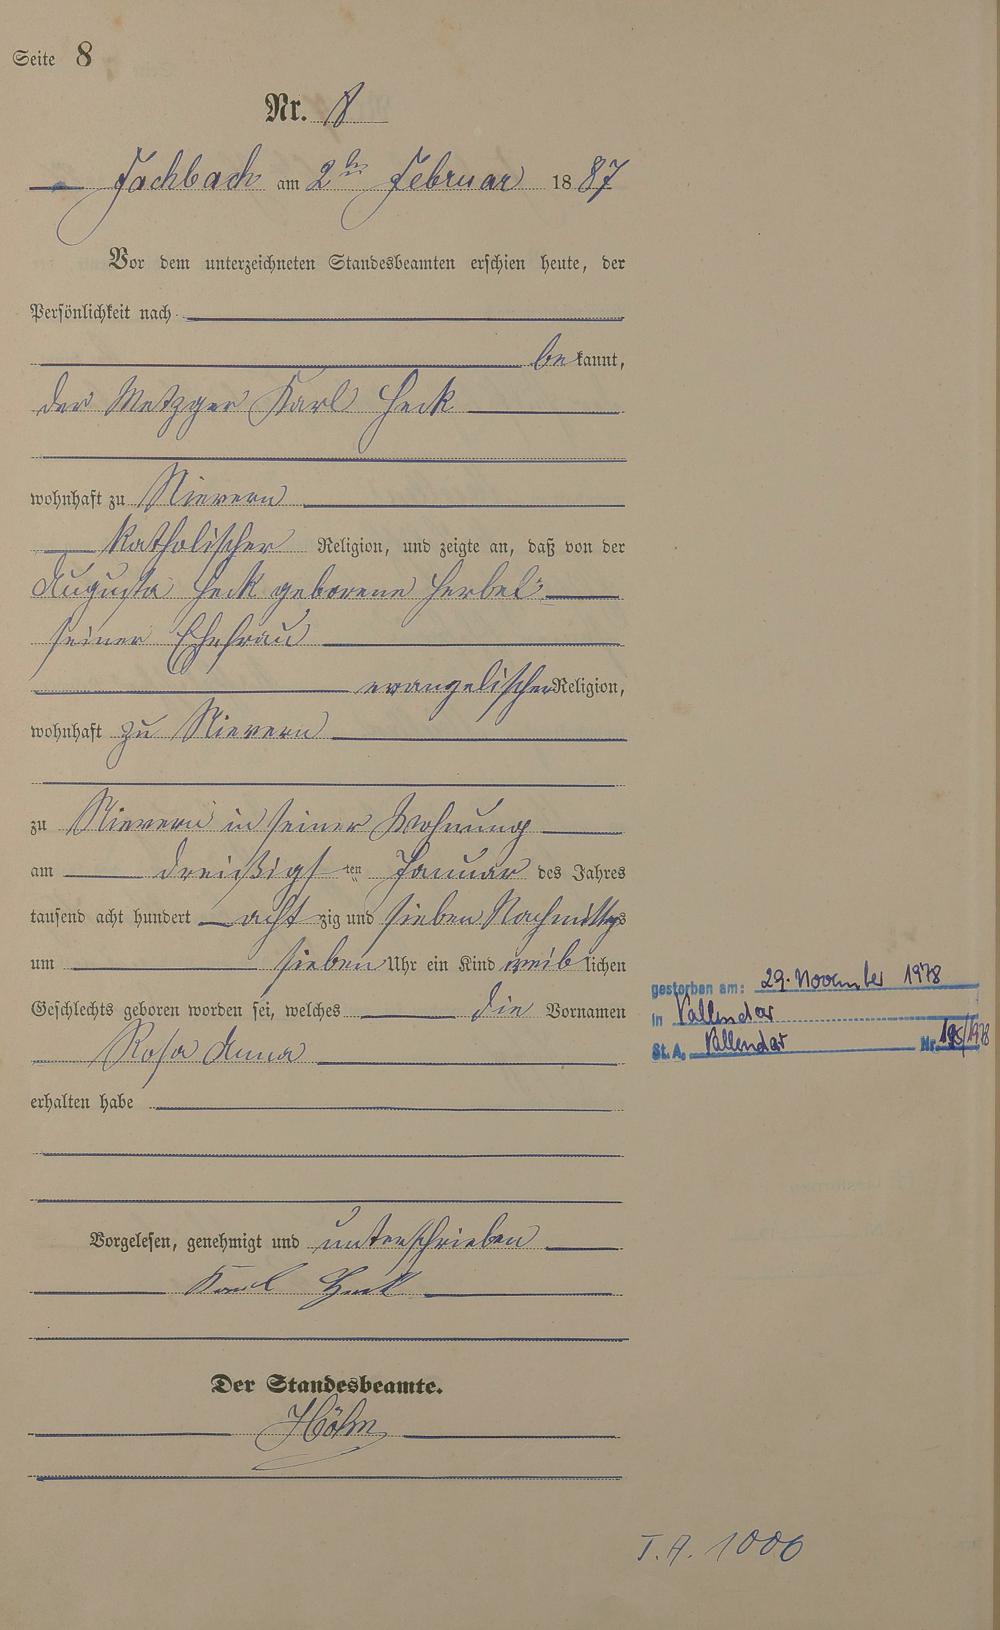 Seite 8
Nr. 8
Fachbach am 2ten Februar 1887
Vor dem unterzeichneten Standesbeamten erschien heute, der
Persönlichkeit nach
bekannt,
der Metzger Karl Heck
wohnhaft zu Nievern
katholischer Religion, und zeigte an, daß von der
Augusta Heck geborene Herbel
seiner Ehefrau
evangelischer Religion,
wohnhaft zu Nievern
zu Nievern in seiner Wohnung
am dreißigsten Januar des Jahres
tausend acht hundert achtzig und sieben Nachmittags
um sieben Uhr ein Kind weiblichen
Geschlechts geboren worden sei, welches die Vornamen
Rosa Anna
erhalten habe
Vorgelesen, genehmigt und unterschrieben
Karl Heck
Der Standesbeamte.
Höhn
gestorben am: 29. November 1978
in Vallendar
St. A. Vallendar Nr. 195/1978
T. A. 1000